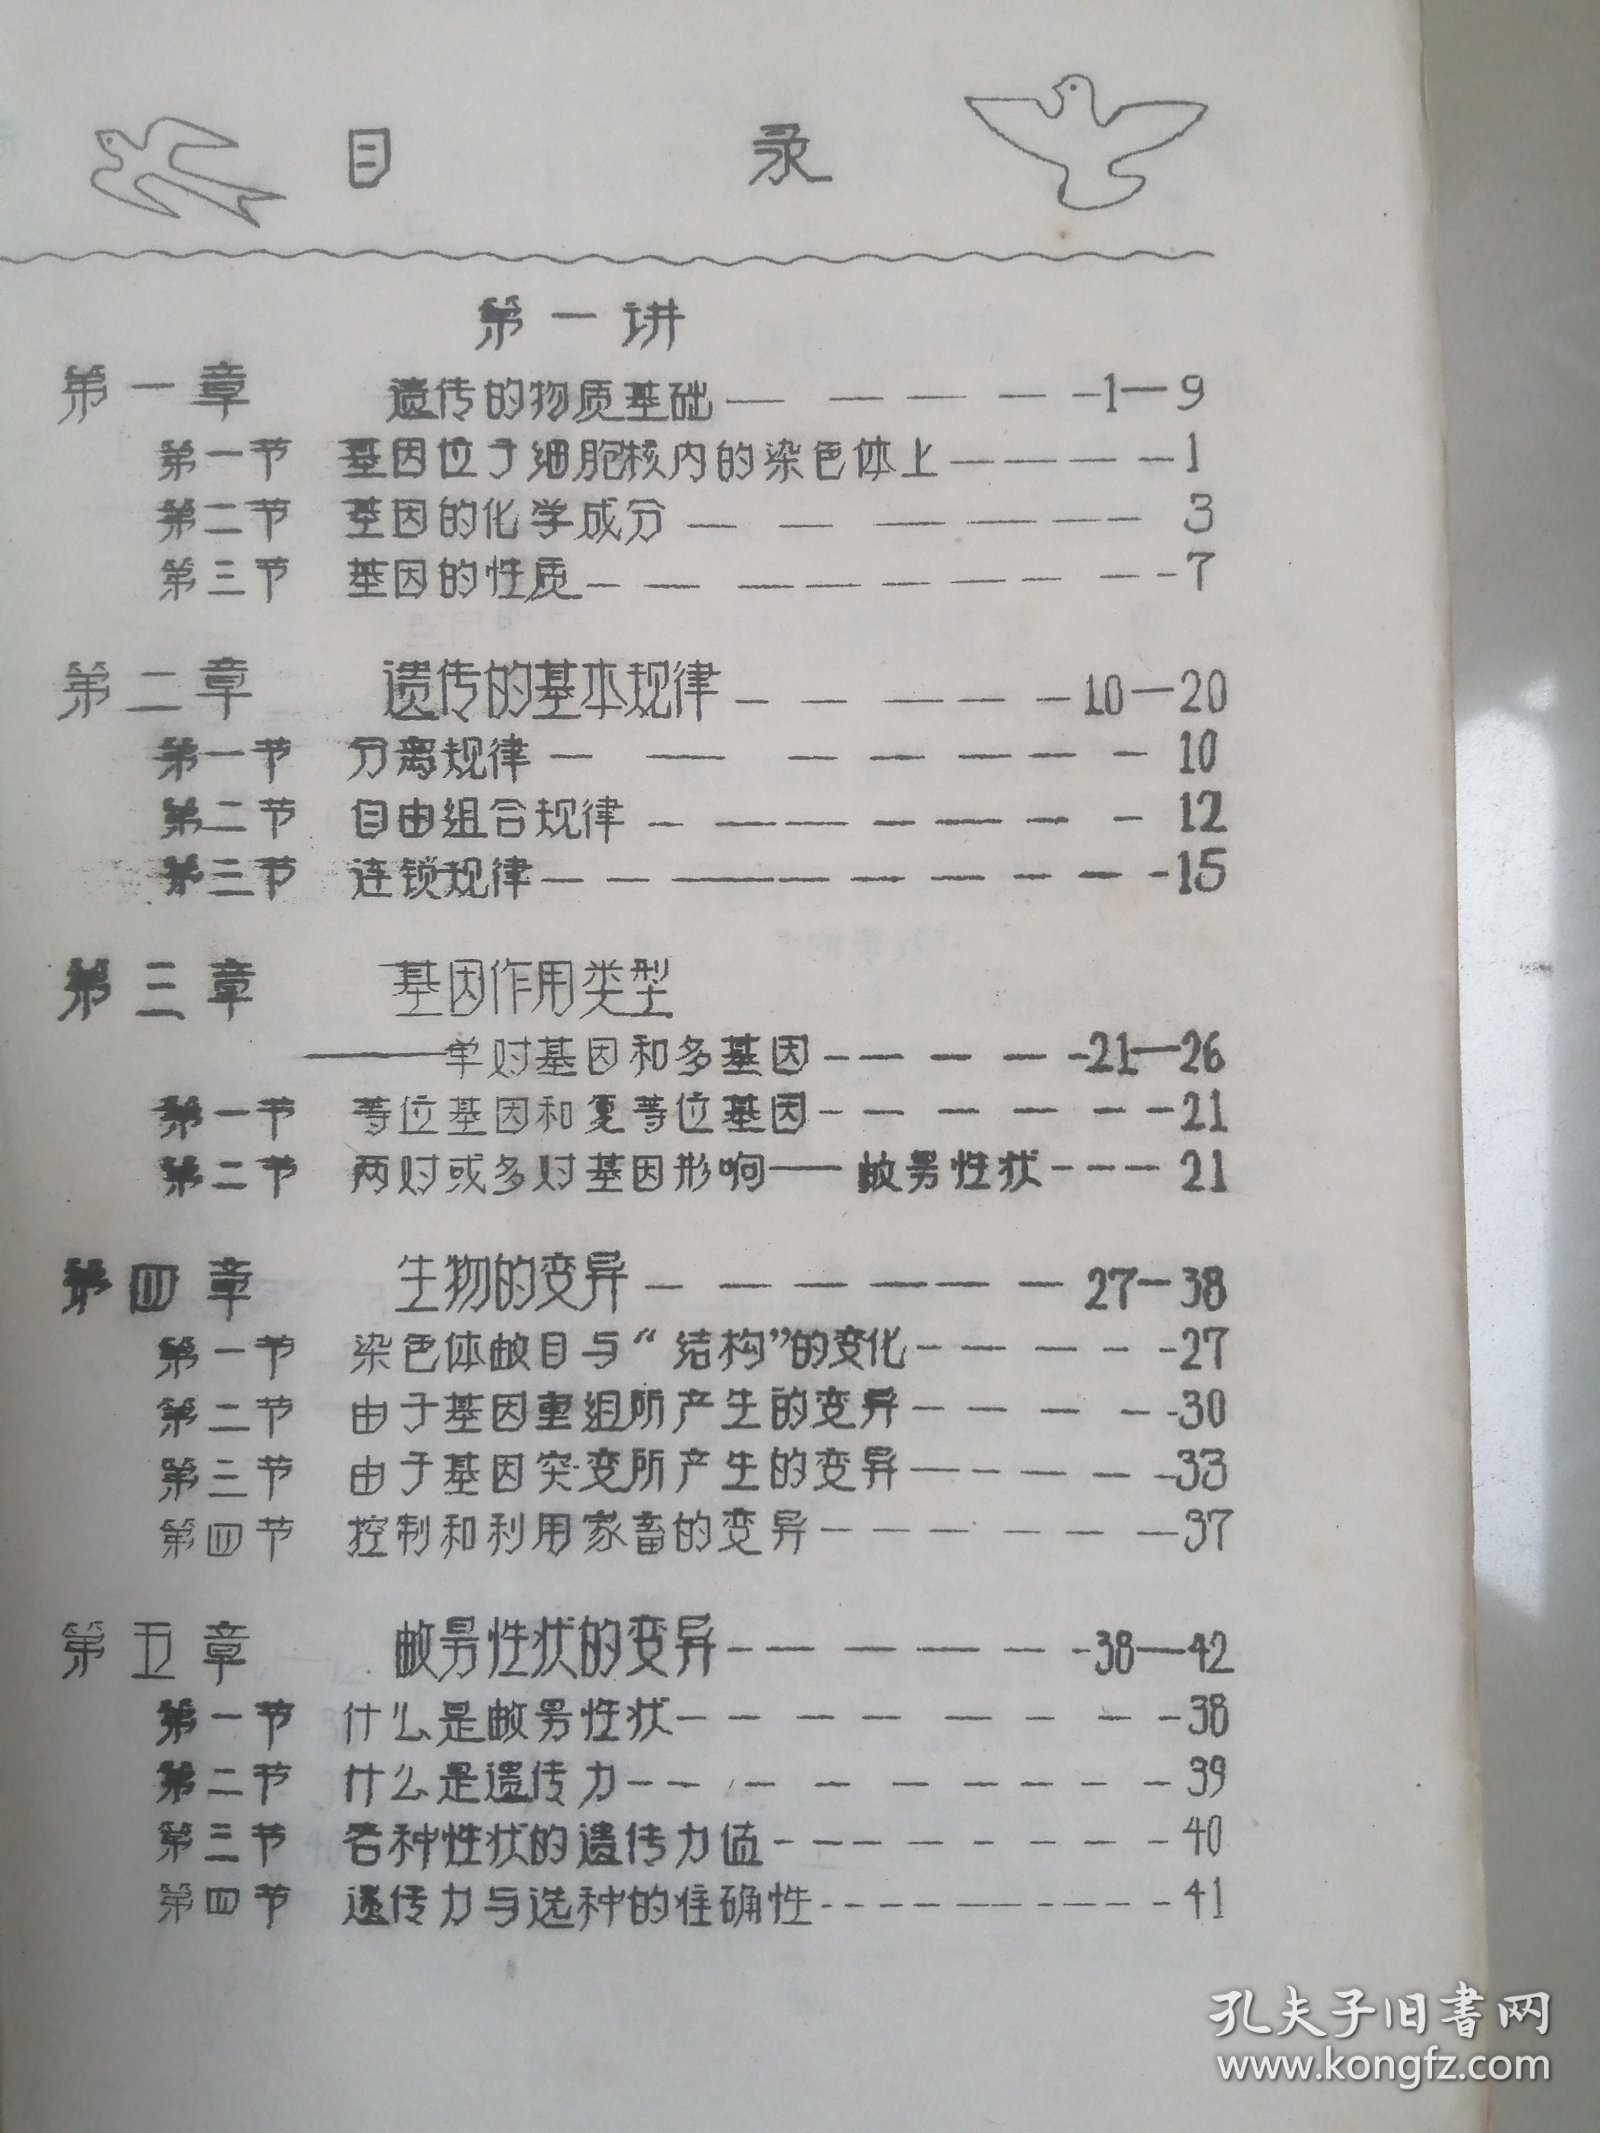 目 录
第一讲
第一章 遗传的物质基础— — — — — -1—9
第一节 基因位于细胞核内的染色体上—————1
第二节 基因的化学成分— — — — — — — 3
第三节 基因的性质— — — — — — — — -7
第二章 遗传的基本规律— — — — — -10—20
第一节 分离规律— — — — — — — — 10
第二节 自由组合规律— — — — — — — 12
第三节 连锁规律— — — — — — — — -15
第三章 基因作用类型
———单对基因和多基因— — — — -21—26
第一节 等位基因和复等位基因- — — — — — -21
第二节 两对或多对基因形响——数男性状---- 21
第四章 生物的变异— — — — — — — 27—38
第一节 染色体数目与“结构”的变化- — — - - -27
第二节 由于基因重组所产生的变异- — — - -30
第三节 由于基因突变所产生的变异— - — — -33
第四节 控制和利用家畜的变异- — — — — —37
第五章 数男性状的变异- — — — — -38—42
第一节 什么是数男性状- - — — — — - -38
第二节 什么是遗传力- - - — — — — - - 39
第三节 各种性状的遗传力值- - - — - - - - -40
第四节 遗传力与选种的准确性- - - - - - - - -41
孔夫子旧书网
www.kongfz.com